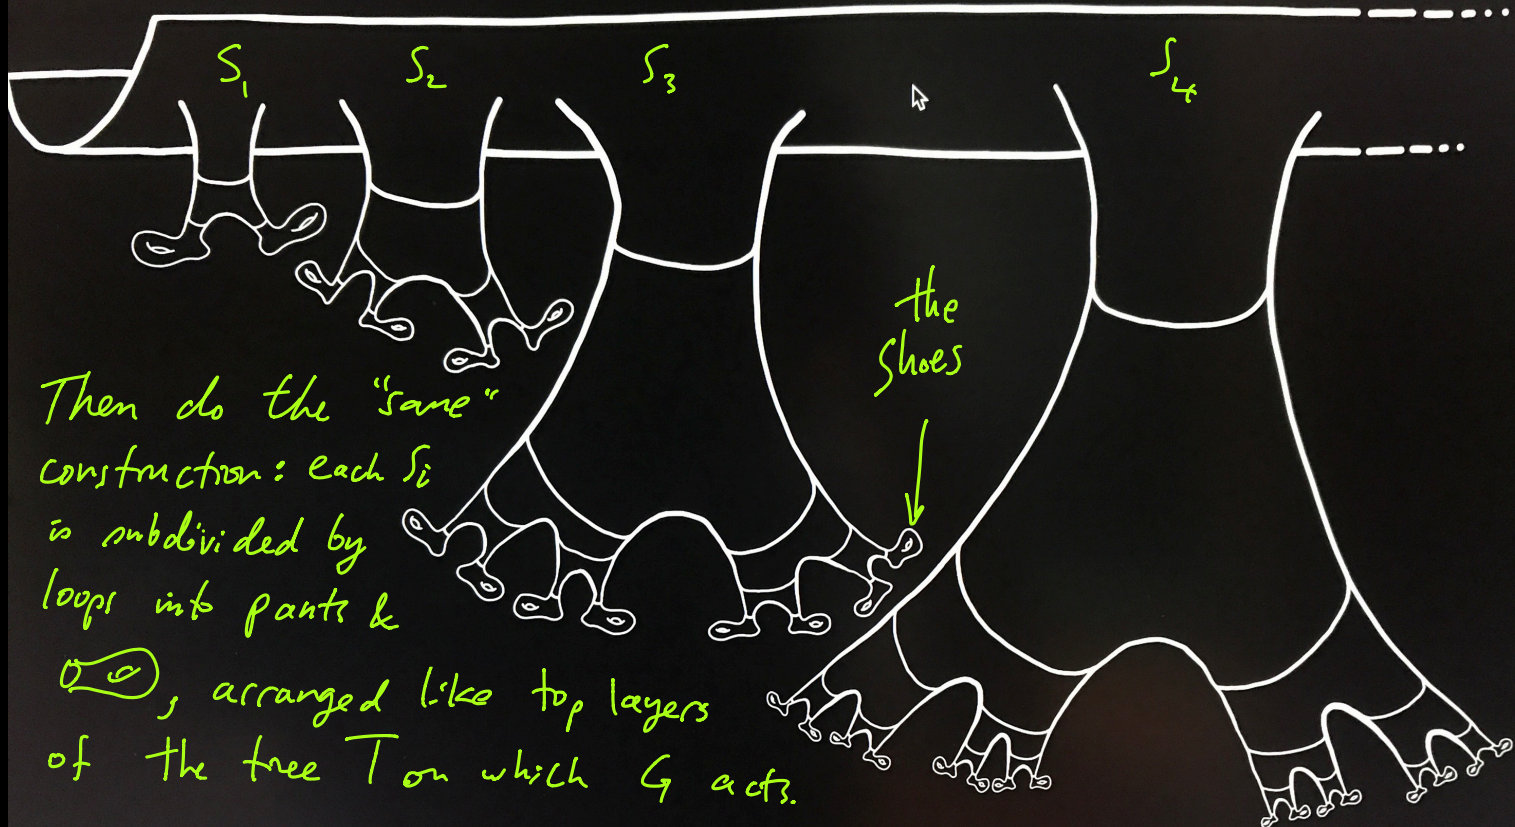 S₁ S₂ S₃ S₄
the
shoes
Then do the "same"
construction: each Si
is subdivided by
loops into pants &
, arranged like top layers
of the tree T on which G acts.